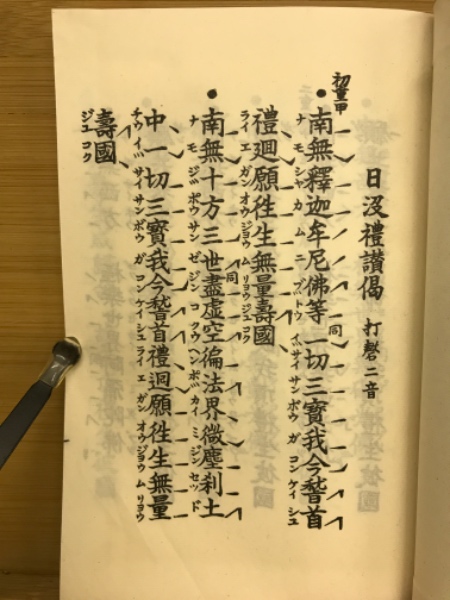 日没禮讃偈 打磬二音
初重甲
南無釋迦牟尼佛等一切三寳我今稽首
ナモシャカムニブットウイッサイサンボウガコンケイシュ
同
禮廻願徃生無量壽國
ライエガンオウジョウムリョウジュコク
南無十方三世盡虚空徧法界微塵刹土
ナモジッポウサンゼジンコクウヘンポッカイミジンセッド
同
中一切三寳我今稽首禮廻願徃生無量
チウイッサイサンボウガコンケイシュライエガンオウジョウムリョウ
壽國
ジュコク